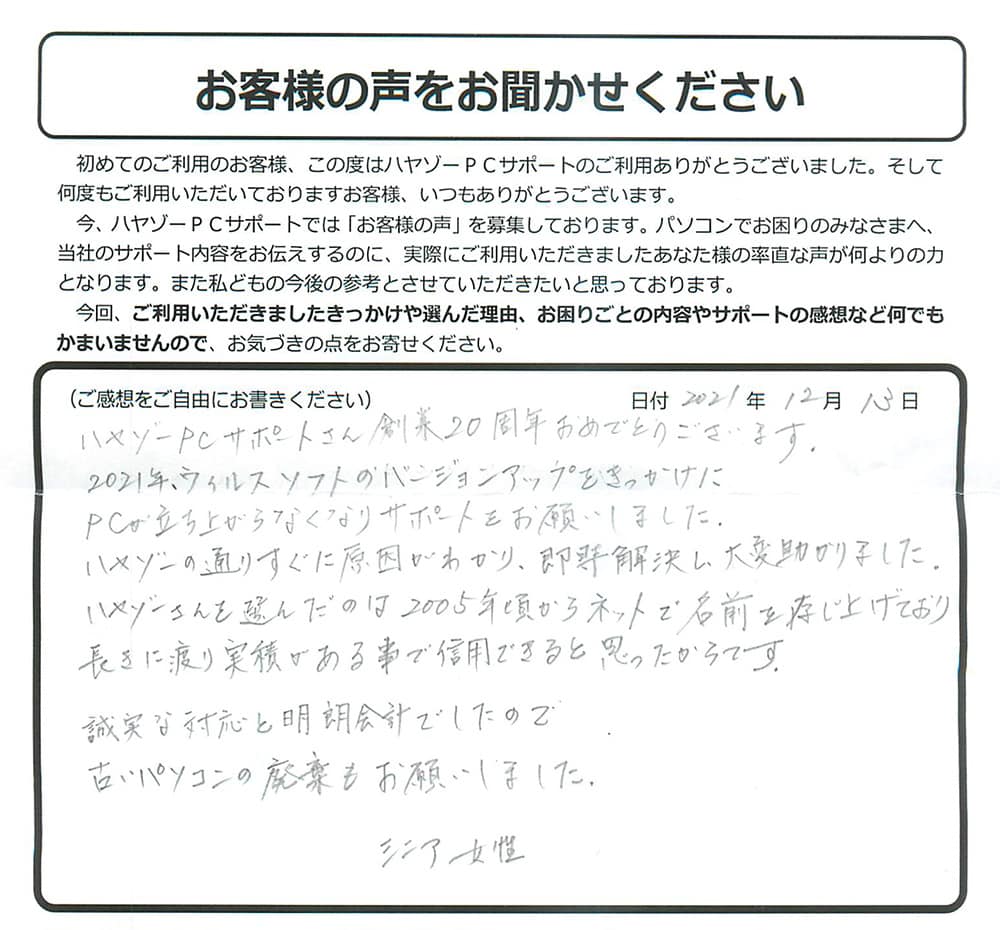 お客様の声をお聞かせください
初めてのご利用のお客様、この度はハヤゾーPCサポートのご利用ありがとうございました。そして
何度もご利用いただいておりますお客様、いつもありがとうございます。
今、ハヤゾーPCサポートでは「お客様の声」を募集しております。パソコンでお困りのみなさまへ、
当社のサポート内容をお伝えするのに、実際にご利用いただきましたあなた様の率直な声が何よりの力
となります。また私どもの今後の参考とさせていただきたいと思っております。
今回、ご利用いただきましたきっかけや選んだ理由、お困りごとの内容やサポートの感想など何でも
かまいませんので、お気づきの点をお寄せください。
（ご感想をご自由にお書きください） 日付 2021 年 12 月 13 日
ハヤゾーPCサポートさん創業20周年おめでとうございます。
2021年、ウィルスソフトのバージョンアップをきっかけに
PCが立ち上がらなくなりサポートをお願いしました。
ハヤゾーの通りすぐに原因がわかり、即時解決し、大変助かりました。
ハヤゾーさんを選んだのは2005年頃からネットで名前を存じ上げており
長きに渡り実積がある事で信用できると思ったからです。
誠実な対応と明朗会計でしたので
古いパソコンの廃棄もお願いしました。
シニア女性